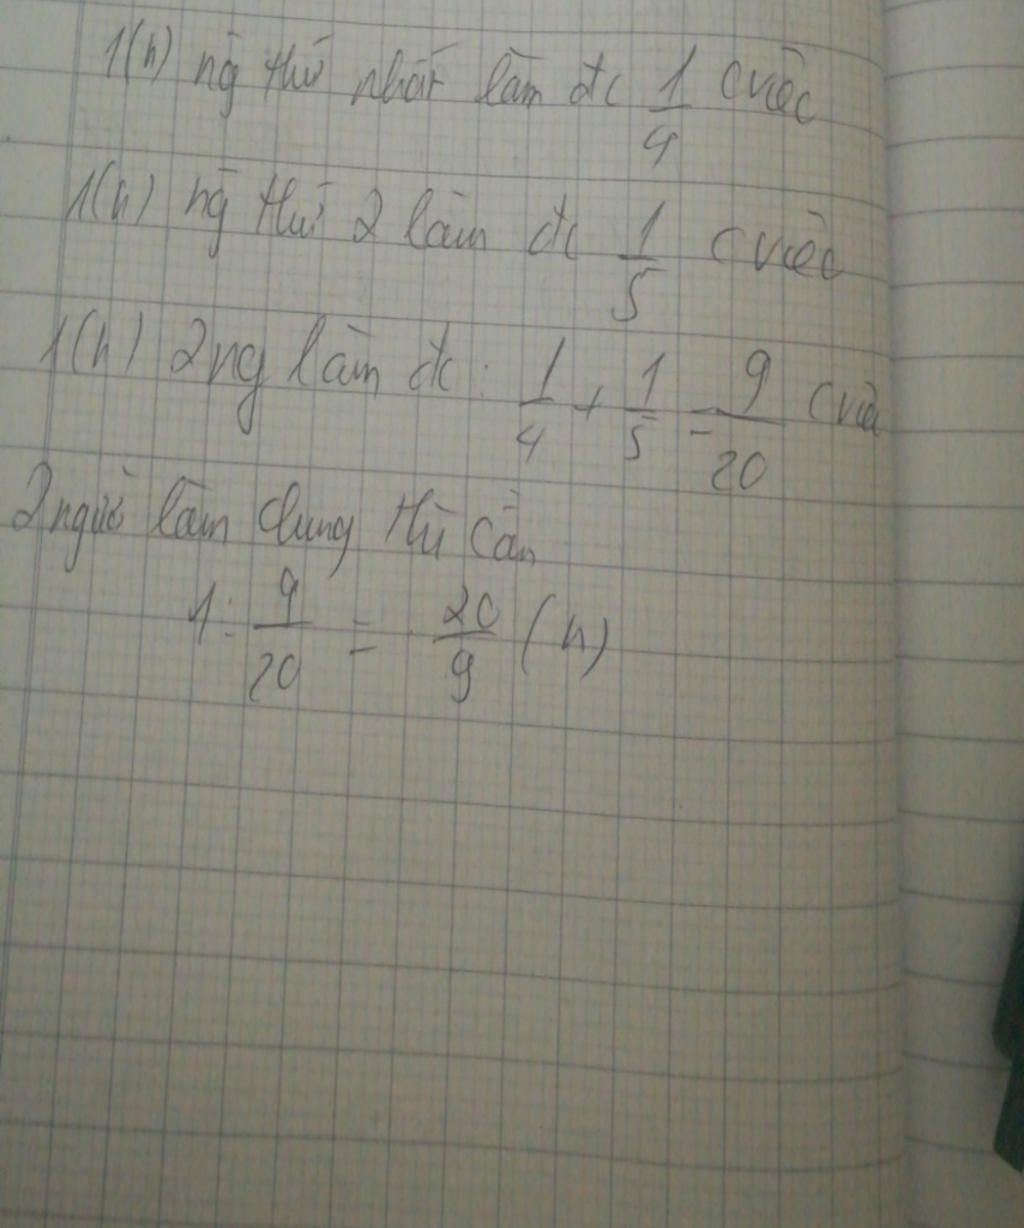 1(h) ng thứ nhất làm đc 1/4 cviệc
1(h) ng thứ 2 làm đc 1/5 cviệc
1(h) 2ng làm đc: 1/4 + 1/5 = 9/20 cviệc
2 người làm chung thì cần
1: 9/20 = 20/9 (h)